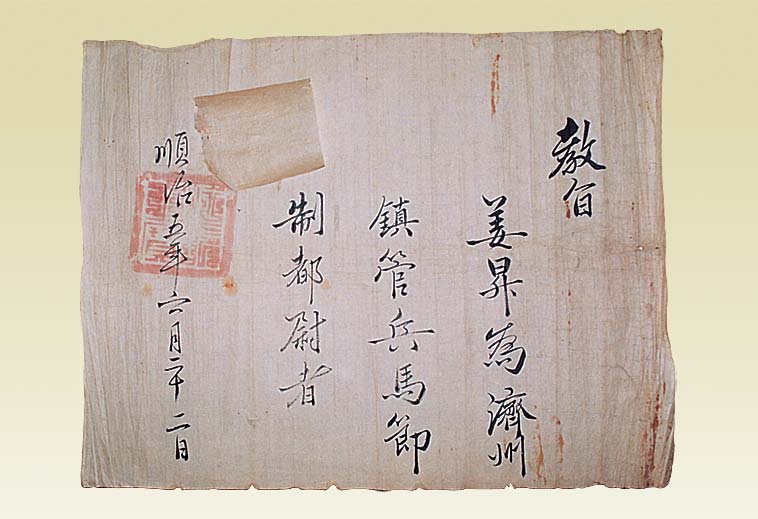 教旨
姜昇為濟州
鎮管兵馬節
制都尉者
順治五年六月二十二日